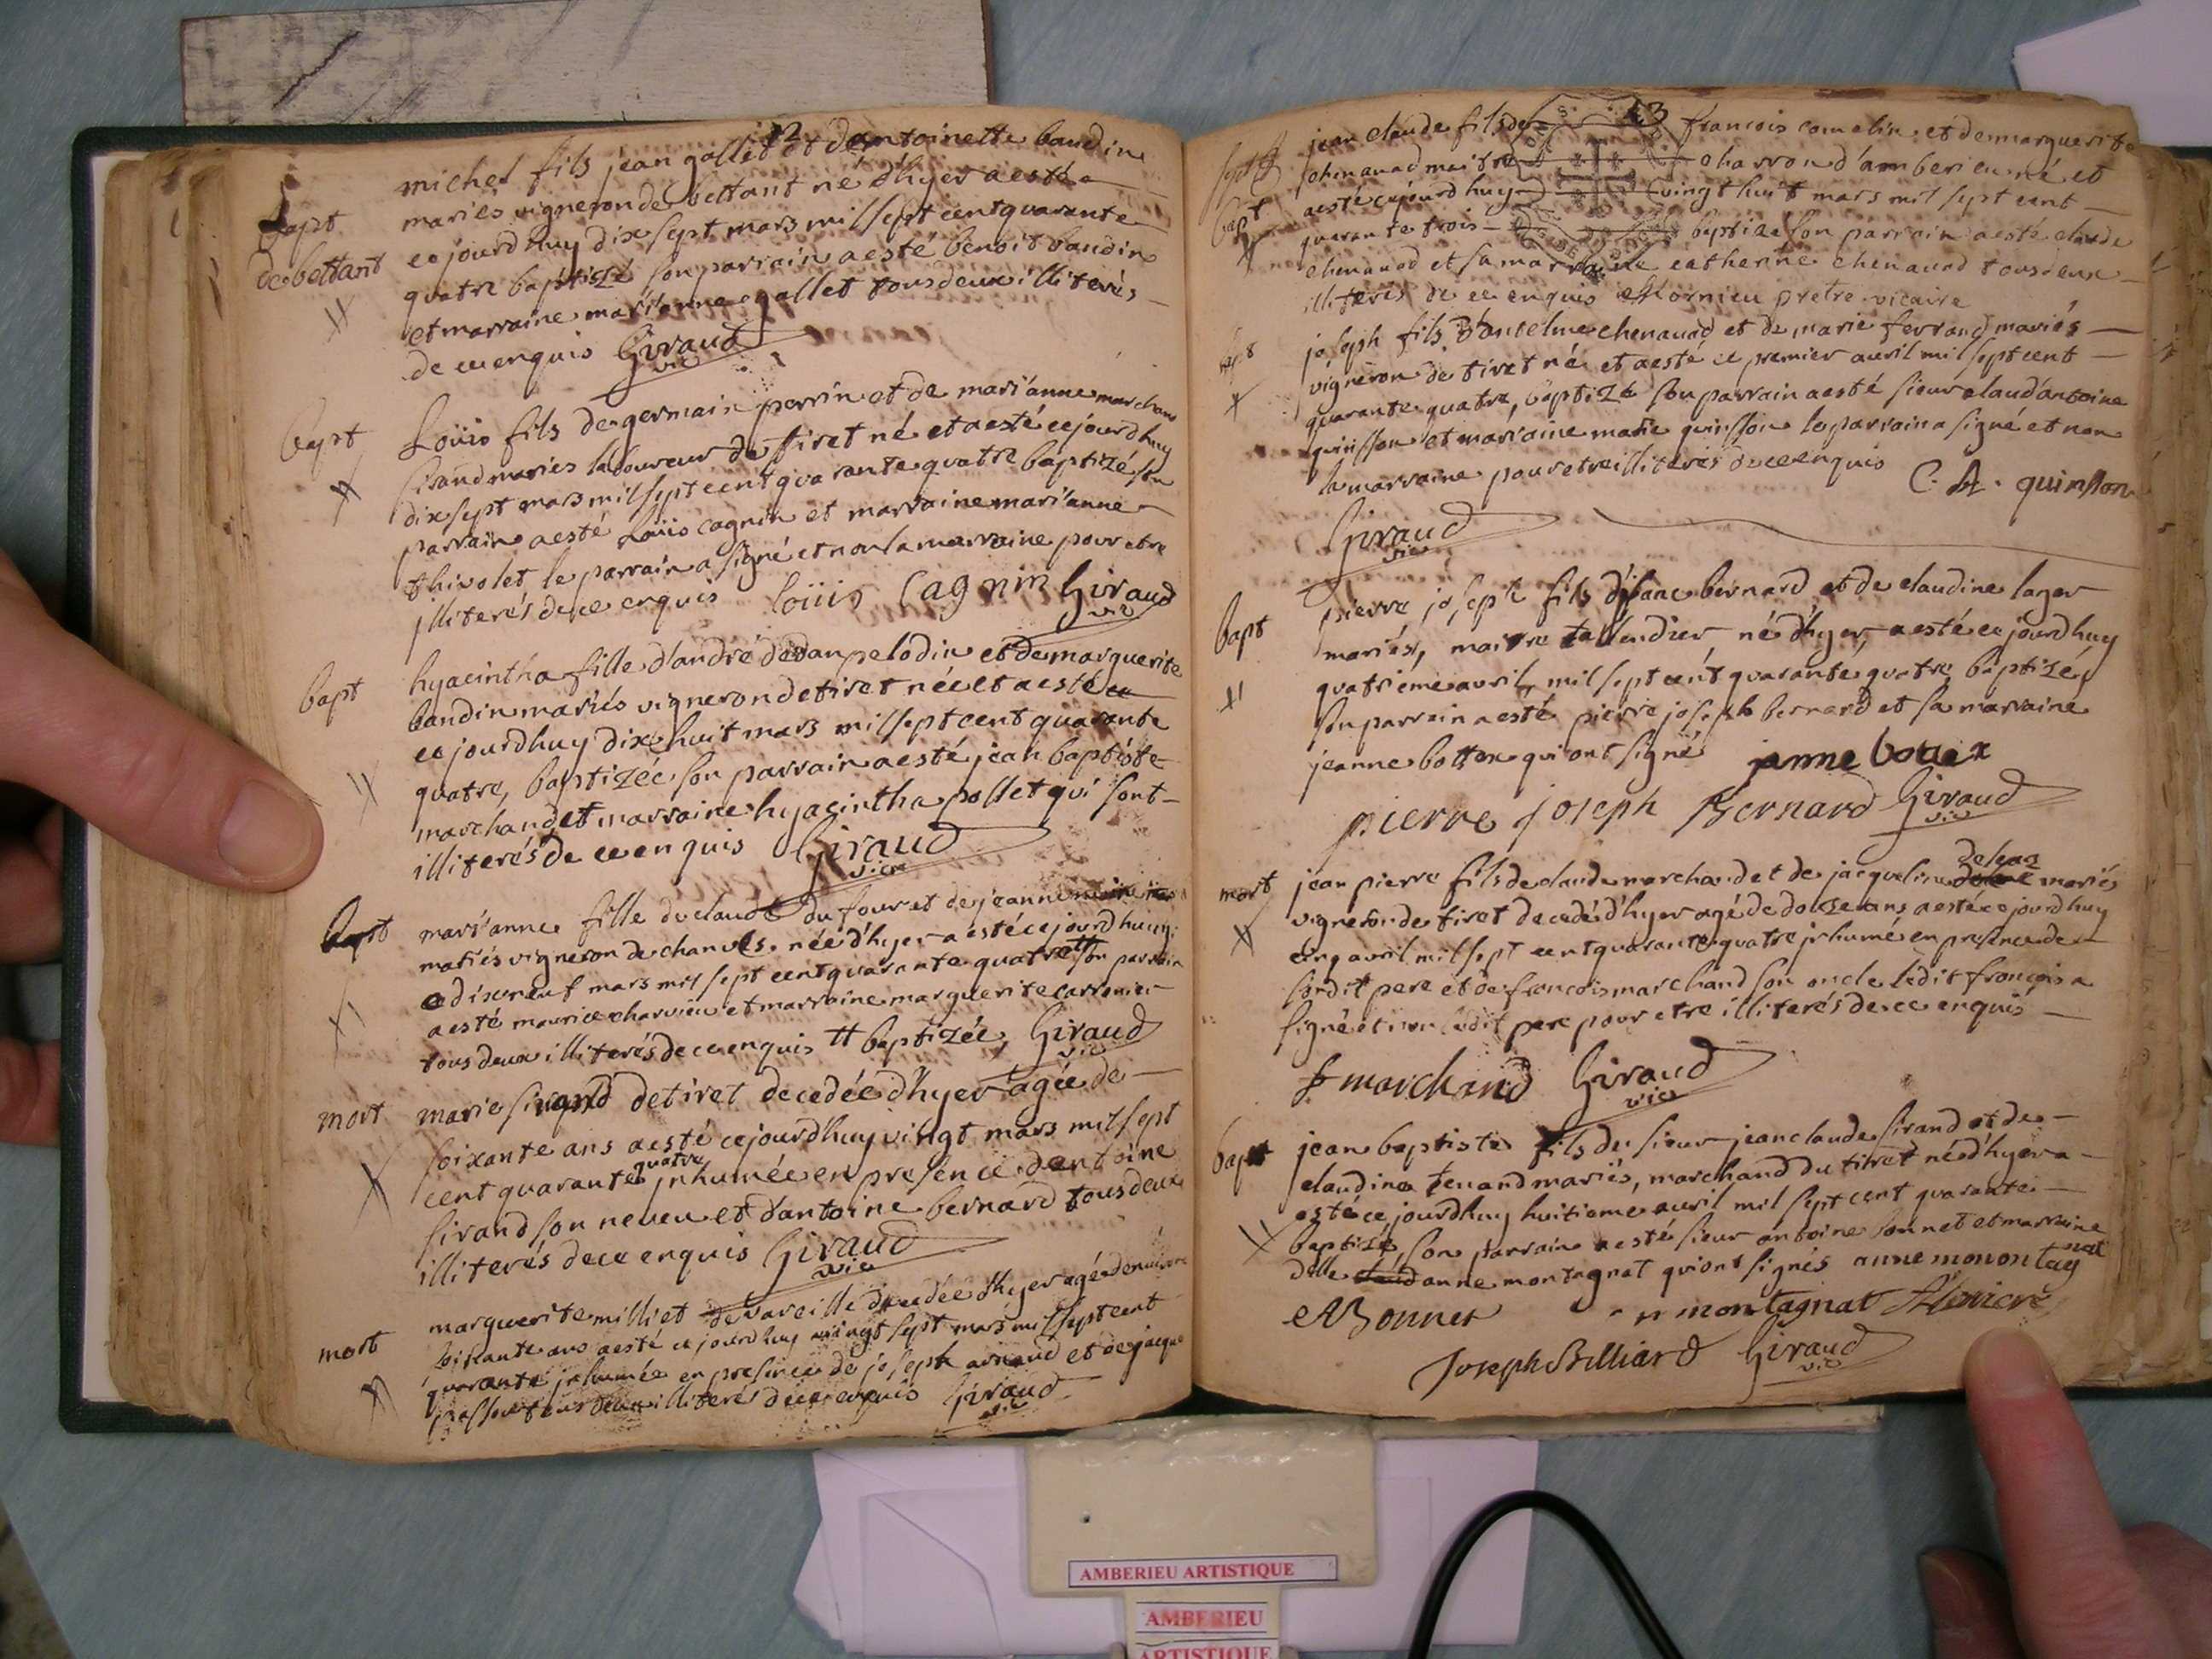 12
bapt
de bettant
michel fils jean gallet et d'antoinette baudin
mariés vigneron de bettant né d'hyer a esté
cejourdhuy dix sept mars mil sept cent quarante
quatre baptizé son parrain a esté benoit baudin
et marraine marianne gallet tous deux illiterés
de ce enquis Giraud
vic
bapt
Loüis fils de germain perrin et de marianne marchand
sirand mariés laboureur de tiret né et a esté cejourdhuy
dix sept mars mil sept cent quarante quatre baptizé son
parrain a esté Loüis cagnin et marraine marianne
thivolet le parrain a signé et non la marraine pour etre
jlliterés de ce enquis loüis Cagnin Giraud
vic
bapt
hyacintha fille d'andré dedan pelodin et de marguerite
baudin mariés vigneron de tiret née et a esté ce
cejourdhuy dixe huit mars mil sept cent quarante
quatre, baptizée son parrain a esté jean baptiste
marchand et marraine hyacintha pollet qui sont
illiterés de ce enquis Giraud
vic
bapt
mari'anne fille de claude du four et de jeanne
mariés vigneron de chanves née d'hyer a esté cejourdhuy
ce dixneuf mars mil sept cent quarante quatre # son parrain
a esté maurice charvieu et marraine marguerite carronier
tous deux illiterés de ce enquis # baptizée, Giraud
vic
mort
marie sirand de tiret decedée d'hyer agée de
soixante ans a esté cejourdhuy vingt mars mil sept
cent quarante quatre jnhumée en presence d'antoine
sirand son neveu et d'antoine bernard tous deux
illiterés de ce enquis Giraud
vic
mort
marguerite milliet de vareille decedée d'hyer agée denviron
soixante ans a esté cejourdhuy vingt sept mars mil sept cent
quarante jnhumée en presence de joseph arnaud et de jacque
tous deux illiterés de ce enquis Giraud
vic
13
bapt
jean claude fils de francois comelin et de marguerite
chenavad maitre charron d'amberieu né et
a esté cejourd'huy vingt huit mars mil sept cent
quarante trois baptizé son parrain a esté claude
chenavad et sa marraine catherine chenavad tous deux
illiterés de ce enquis Mornieu prêtre vicaire
bapt
joseph fils d'antelme chenavad et de marie ferrand mariés
vigneron de tiret né et a esté ce premier avril mil sept cent
quarante quatre, baptizé son parrain a esté sieur claud'antoine
quinsson et marraine marie quinsson le parrain a signé et non
la marraine pour etre illiterés de ce enquis C. A. quinson
Giraud
vic
bapt
pierre joseph fils d'isaac bernard et de claudine lager
mariés, maitre taillandier né d'hyer, a esté cejourdhuy
quatrieme avril, mil sept cent quarante quatre baptizé,
son parrain a esté pierre joseph bernard et sa marraine
jeanne bottex qui ont signé janne botex
pierre joseph Bernard Giraud
vic
mort
jean pierre fils de claude marchand et de jacqueline dejean mariés
vigneron de tiret decedé d'hyer agé de douze ans a esté cejourdhuy
cinq avril mil sept cent quarante quatre jnhumé en presence de
sondit pere et de francois marchand son oncle ledit françois a
signé et non ledit pere pour etre illiterés de ce enquis
f marchand Giraud
vic
bapt
jean baptiste fils du sieur jean claude sirand et de
claudine tenand mariés, marchand du tiret né d'hyer a
esté cejourdhuy huitieme avril mil sept cent quarante
baptizé, son parrain a esté sieur antoine bonnet et marraine
dlle anne montagnat qui ont signés anne monontagnat
A Bonnet montagnat
Joseph Billiard Giraud
vic
AMBERIEU ARTISTIQUE
AMBERIEU
ARTISTIQUE